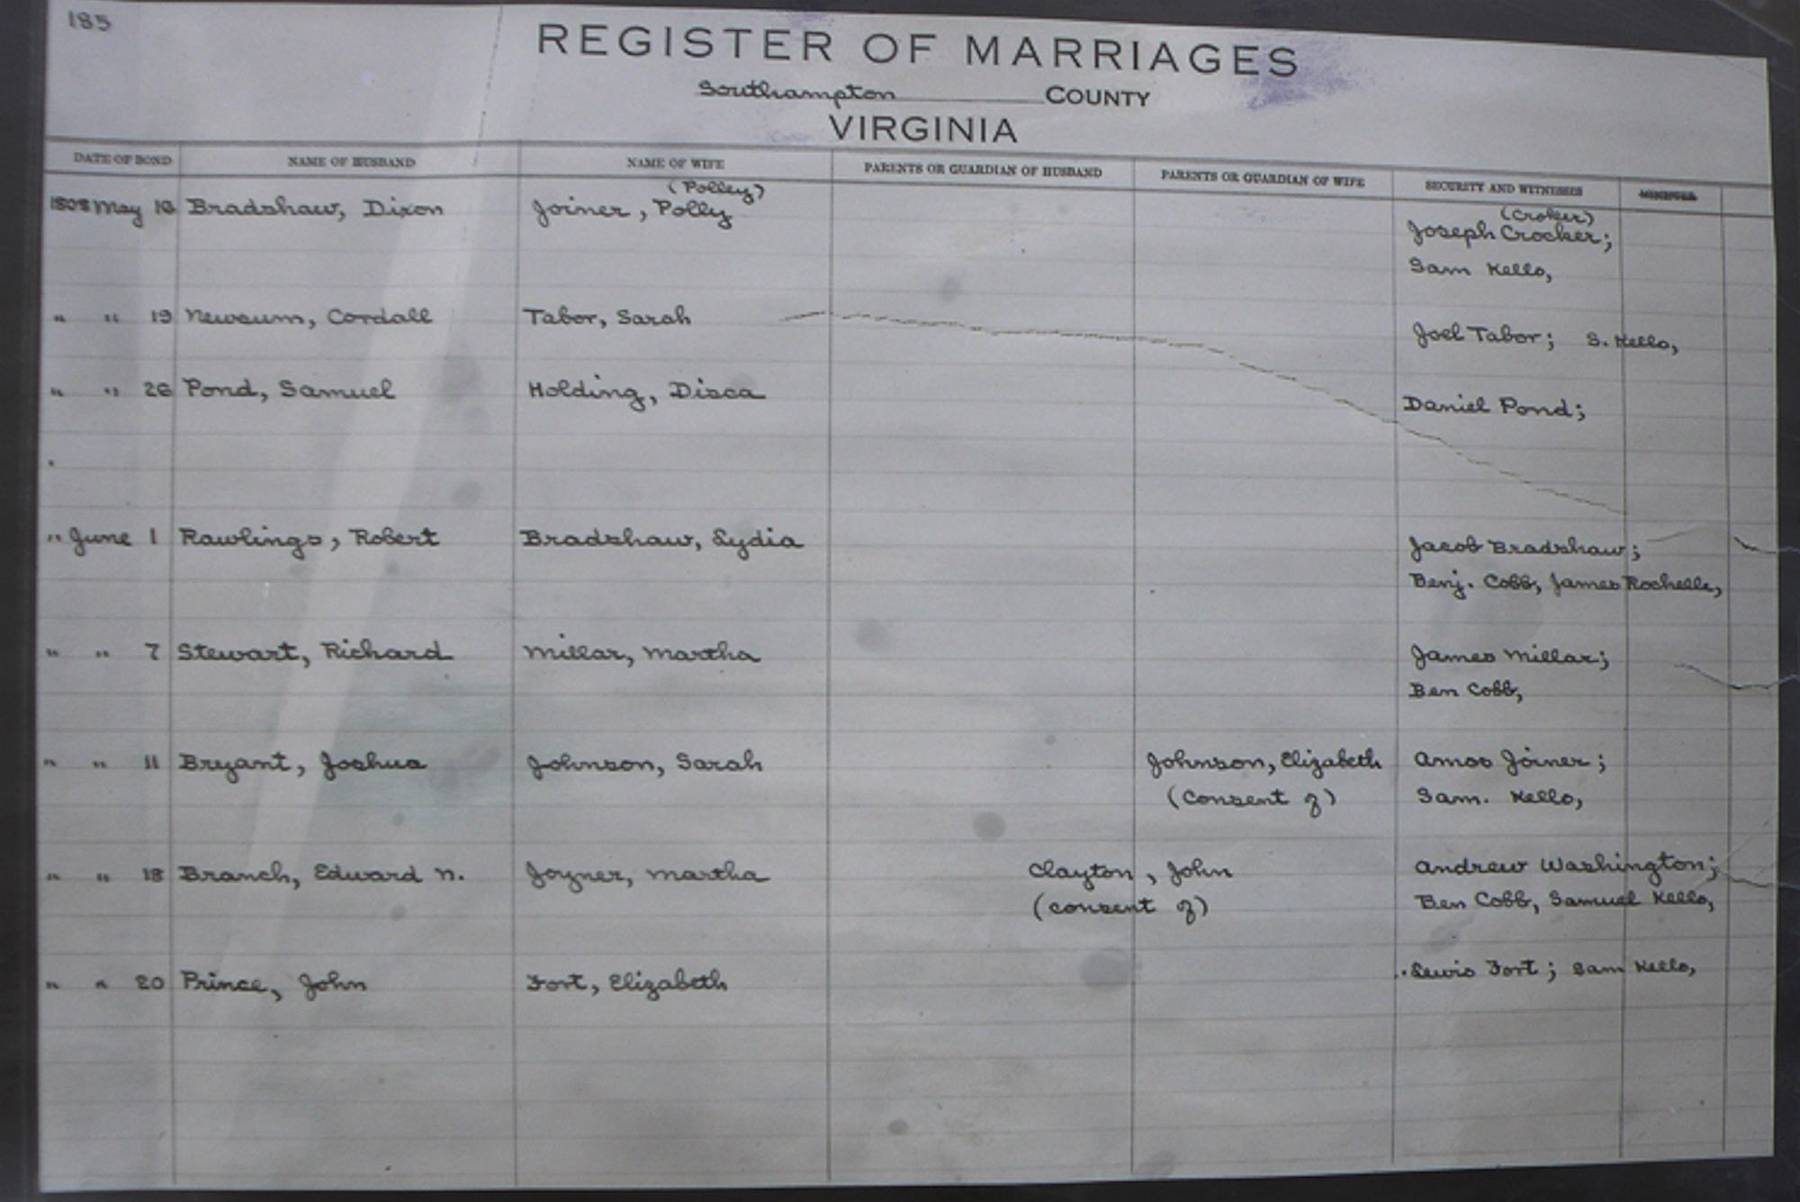 185
REGISTER OF MARRIAGES
Southampton COUNTY
VIRGINIA
DATE OF BOND NAME OF HUSBAND NAME OF WIFE PARENTS OR GUARDIAN OF HUSBAND PARENTS OR GUARDIAN OF WIFE SECURITY AND WITNESSES MINISTER
(Polley) (Croker)
1808 May 16 Bradshaw, Dixon Joiner, Polly Joseph Crocker;
Sam Kello,
" " 19 Newsum, Cordall Tabor, Sarah Joel Tabor; S. Kello,
" " 26 Pond, Samuel Holding, Disca Daniel Pond;
" June 1 Rawlings, Robert Bradshaw, Lydia Jacob Bradshaw;
Benj. Cobb, James Rochelle,
" " 7 Stewart, Richard Millar, Martha James Millar;
Ben Cobb,
" " 11 Bryant, Joshua Johnson, Sarah Johnson, Elizabeth Amos Joiner;
(consent of) Sam. Kello,
" " 18 Branch, Edward N. Joyner, Martha Clayton, John Andrew Washington;
(consent of) Ben Cobb, Samuel Kello,
" " 20 Prince, John Fort, Elizabeth Lewis Fort; Sam Kello,